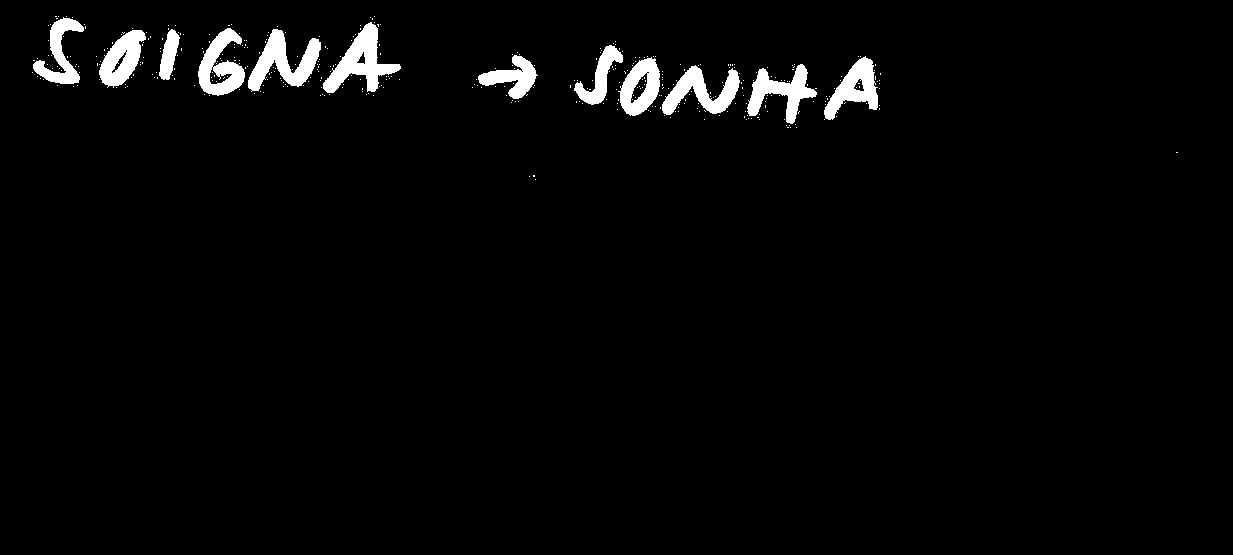 SOIGNA → SONHA